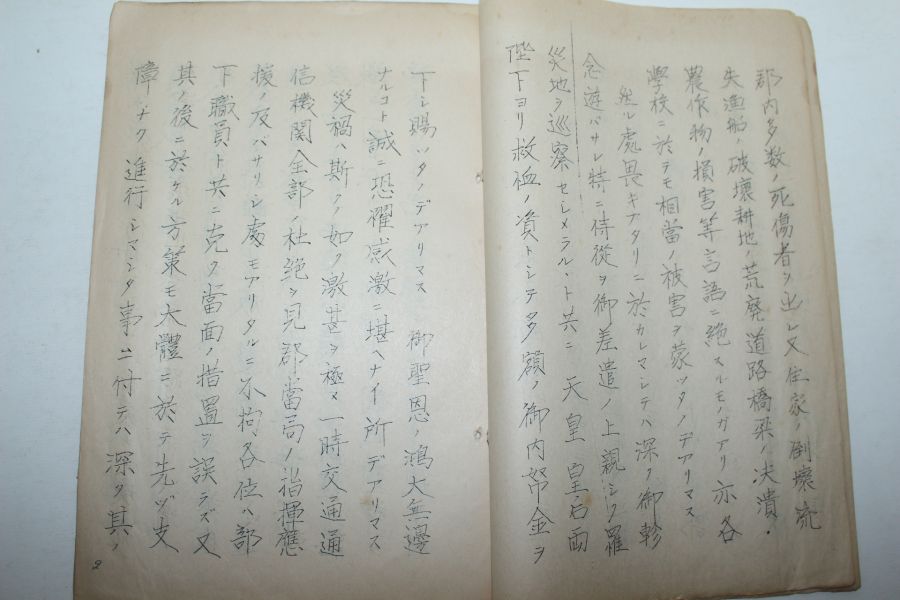 郡内多数ノ死傷者ヲ出シ又住家ノ倒壊流
失漁船ノ破壊耕地ノ荒廃道路橋梁ノ決潰、
農作物ノ損害等言語ニ絶スルモノガアリ亦各
學校ニ於テモ相當ノ被害ヲ蒙ツタノデアリマス
然ル處畏キアタリニ於カレマシテハ深ク御軫
念遊バサレ特ニ侍從ヲ御差遣ノ上親シク罹
災地ヲ巡察セシメラル、ト共ニ 天皇 皇后両
陛下ヨリ救恤ノ資トシテ多額ノ御内帑金ヲ
下シ賜ツタノデアリマス 御聖恩ノ鴻大無邊
ナルコト誠ニ恐懼感激ニ堪ヘナイ所デアリマス
災禍ハ斯クノ如ク激甚ヲ極メ一時交通通
信機關全部ノ杜絶ヲ見郡當局ノ指揮應
援ノ及バザリシ處モアリタルニ不拘各位ハ部
下職員ト共ニ克ク當面ノ措置ヲ誤ラズ又
其ノ後ニ於ケル方策モ大體ニ於テ先ヅ支
障ナク進行シマシタ事ニ付テハ深ク其ノ
2